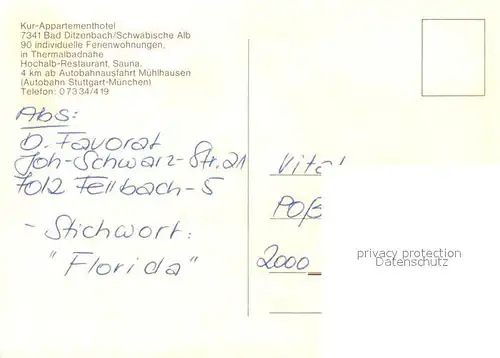 Kur-Appartementhotel
7341 Bad Ditzenbach/Schwäbische Alb
90 individuelle Ferienwohnungen,
in Thermalbadnähe
Hochalb-Restaurant, Sauna.
4 km ab Autobahnausfahrt Mühlhausen
(Autobahn Stuttgart-München)
Telefon: 07334/419
Abs:
D. Favorat
Joh-Schwarz-Str. 21
7012 Fellbach-5
- Stichwort:
"Florida"
2000
privacy protection
Datenschutz